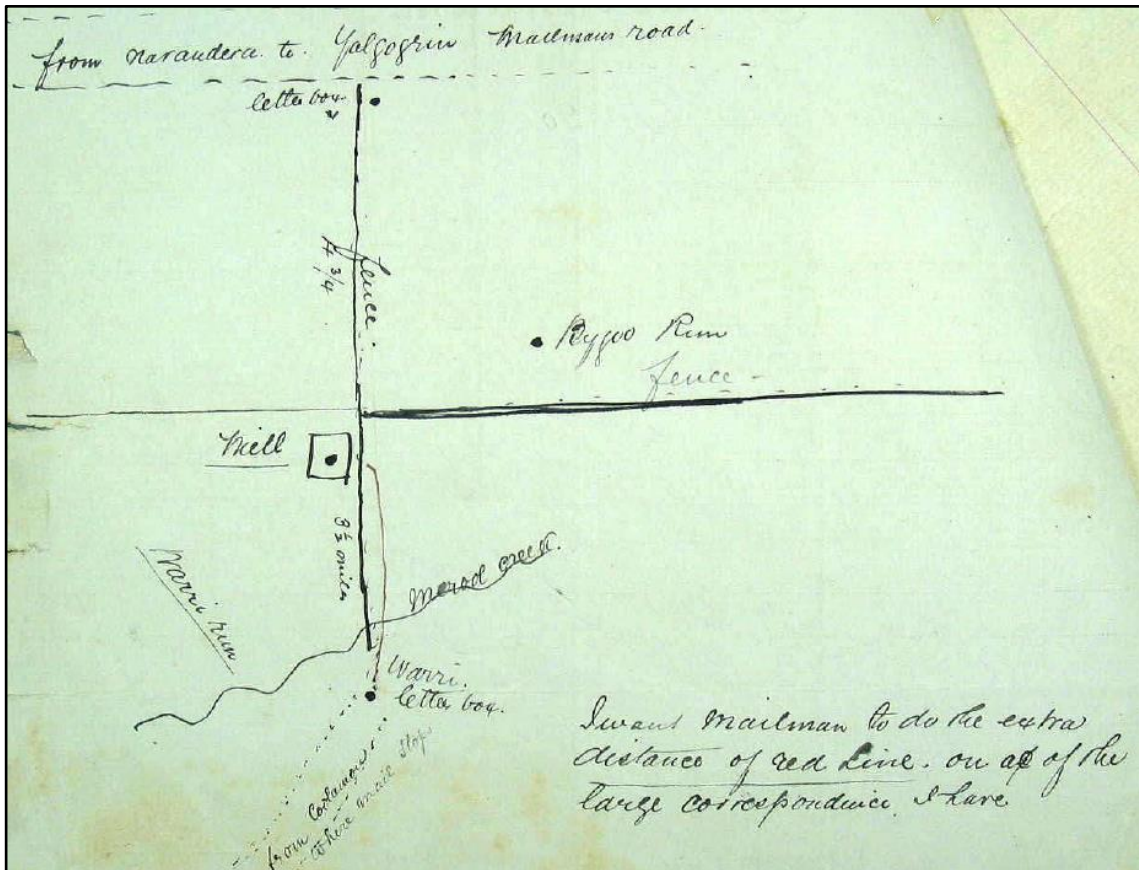 from Narandera. to. Yalgogrin Mailmans road.
letter box
fence.
4 3/4
Bygoo Run
fence
Mill
3 1/2 miles
Warri run
Mirool creek.
Warri.
letter box.
from
where mail stop
I want Mailman to do the extra
distance of red Line. on a/c of the
large correspondence I have